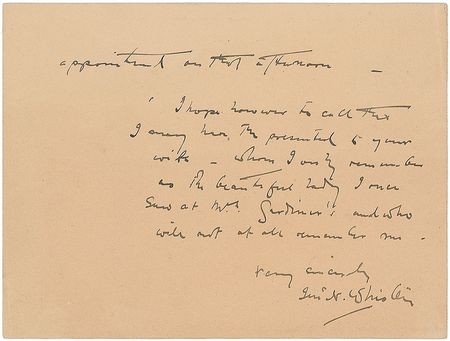 appointment on that afternoon —
I hope however to call then
I may have the presented to your
wife — whom I only remember
as the beautiful lady I once
saw at Mrs. Gardiner's and who
will not at all remember me.
Very sincerely